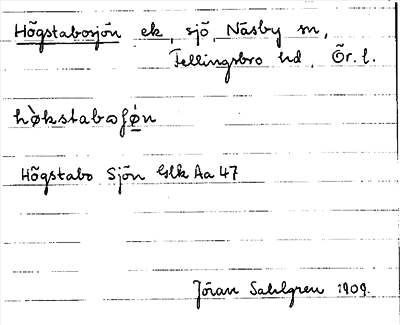 Högstabosjön ek, sjö, Näsby sn,
Fellingsbro hd, Ör. l.
hø̀kstabaʃǿn
Högstabo Sjön Glk Aa 47
Jöran Sahlgren 1909.